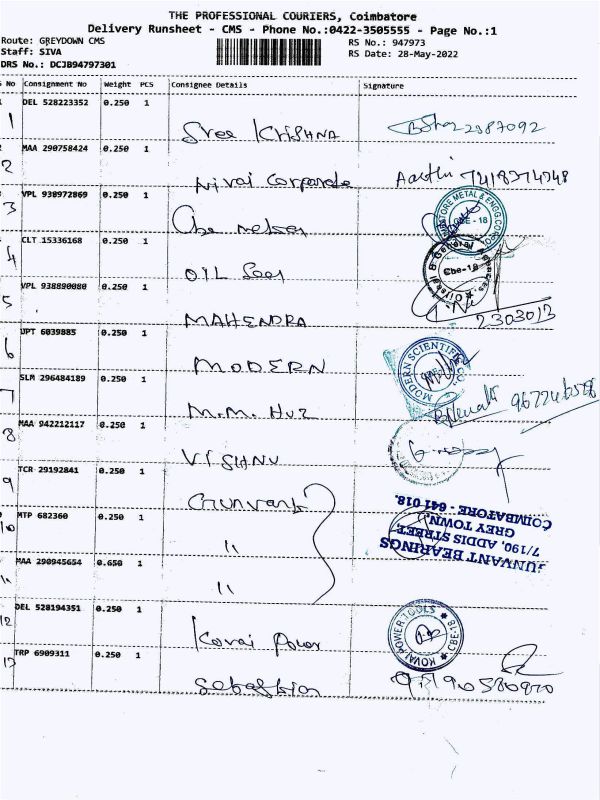 THE PROFESSIONAL COURIERS, Coimbatore
Delivery Runsheet - CMS - Phone No.:0422-3505555 - Page No.:1
Route: GREYDOWN CMS
RS No.: 947973
Staff: SIVA
RS Date: 28-May-2022
DRS No.: DCJB94797301
No Consignment No Weight PCS Consignee Details Signature
DEL 528223352 0.250 1
1 Sree Krishna 2387092
MAA 290758424 0.250 1
2 Nirai Corporate Aarthi 7418374748
VPL 938972869 0.250 1
3 Cbe metson
METAL & ENGG.CORPO
CBE - 18
CLT 15336168 0.250 1
4 OIL Seas
Cbe-18
VPL 938890080 0.250 1
5 MAHENDRA 2303013
UPT 6039885 0.250 1
6 MODERN
MODERN SCIENTIFIC CO.
SLM 296484189 0.250 1
7 M.M. Huz
MAA 942212117 0.250 1
8 VISHNU
TCR 29192841 0.250 1
9 Gunvant
MTP 682360 0.250 1
10 "
JUNVANT BEARINGS
7/190, ADDIS STREET,
GREY TOWN,
COIMBATORE - 641 018.
MAA 290945654 0.650 1
11 "
DEL 528194351 0.250 1
12 Kovai Power
KOVAI POWER TOOLS
CBE-
TRP 6909311 0.250 1
13 Sebastian